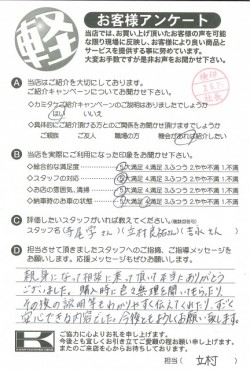 軽
お客様アンケート
当店では、お買い上げ頂いたお客様の声を可能
な限り現場に反映し、お客様により良い商品と
サービスを提供する事に努めています。
大変お手数ですが是非お声をお聞かせ下さい。
A 当店はご紹介を大切にしております。
ご紹介キャンペーンについてお聞かせ下さい。
◇カミタケご紹介キャンペーンのご説明はありましたでしょうか
はい いいえ
◇具体的にご紹介頂ける方とのご関係をお聞かせ頂けますでしょうか
ご親族 ご友人 職場の方 機会があれば紹介したい
B 当店を実際にご利用になった印象をお聞かせ下さい。
◇総合的な満足度 5.大満足 4.満足 3.ふつう 2.やや不満 1.不満
◇スタッフの対応 5.大満足 4.満足 3.ふつう 2.やや不満 1.不満
◇お店の雰囲気、清掃 5.大満足 4.満足 3.ふつう 2.やや不満 1.不満
◇納車時のお車の状態 5.大満足 4.満足 3.ふつう 2.やや不満 1.不満
C 評価したいスタッフがいれば教えてください。(複数回答可)
スタッフ名( さん)(立村 さん)( さん)
D 担当させて頂きましたスタッフへのご指摘、ご指導メッセージを
お願いします。応援メッセージもぜひお願いします。
親身になって相談に乗って頂いて本当にありがとう
ございました。購入時に色々無理を聞いてもらたり
その後の説明等もわかりやすく伝えてくれたり、ずっと
安心できる内容でした。今後ともよろしくお願い致します。
K
ご協力に心よりお礼を申し上げます。
今後とも宜しくお引き立てご愛顧の程お願い申し上げます。
またのご来店を心からお待ちしております。
担当( 立村 )